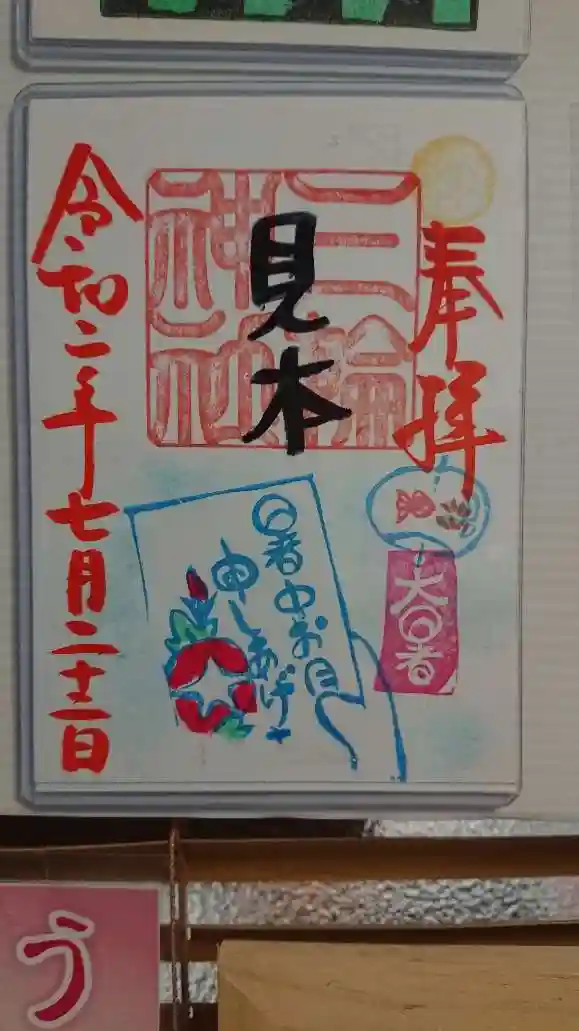 奉拝
三輪
神社
見本
令和二年七月二十二日
大暑
暑中お見
申しあげ
う